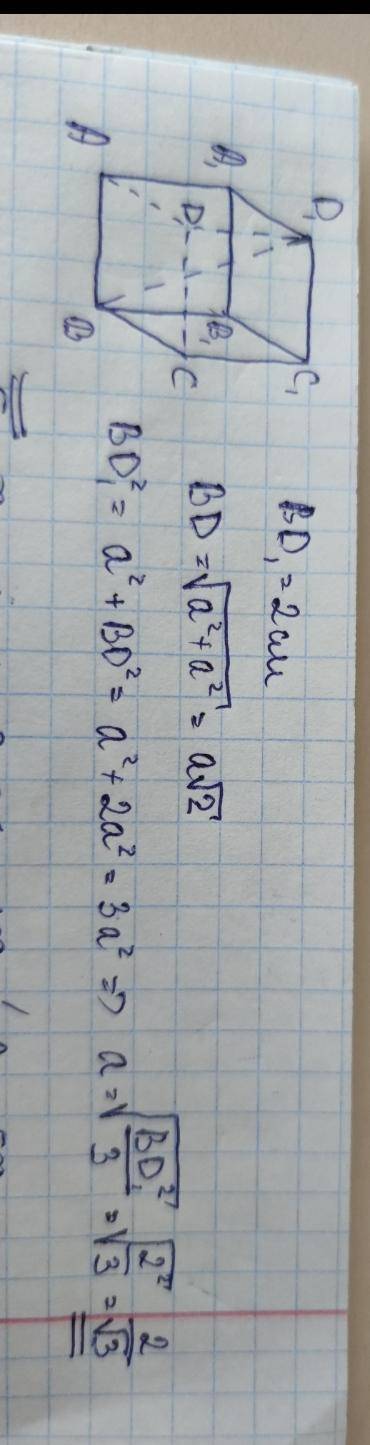 D₁ C₁
A₁ B₁
D C
A B
BD₁ = 2 см
BD = √(a² + a²) = a√2
BD₁² = a² + BD² = a² + 2a² = 3a² => a = √(BD₁²/3) = √(2²/3) = 2/√3